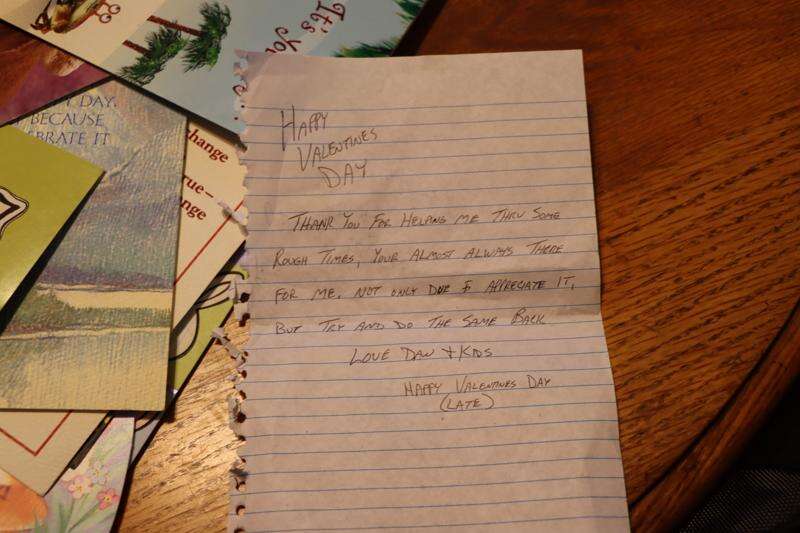 It's you
Y DAY,
BECAUSE
EBRATE IT
hange
rue—
nge
HAPPY
VALENTINES
DAY
THANK YOU FOR HELPING ME THRU SOME
ROUGH TIMES, YOUR ALMOST ALWAYS THERE
FOR ME. NOT ONLY DOE I APPRECIATE IT,
BUT TRY AND DO THE SAME BACK
LOVE DAN + KIDS
HAPPY VALENTINES DAY
(LATE)